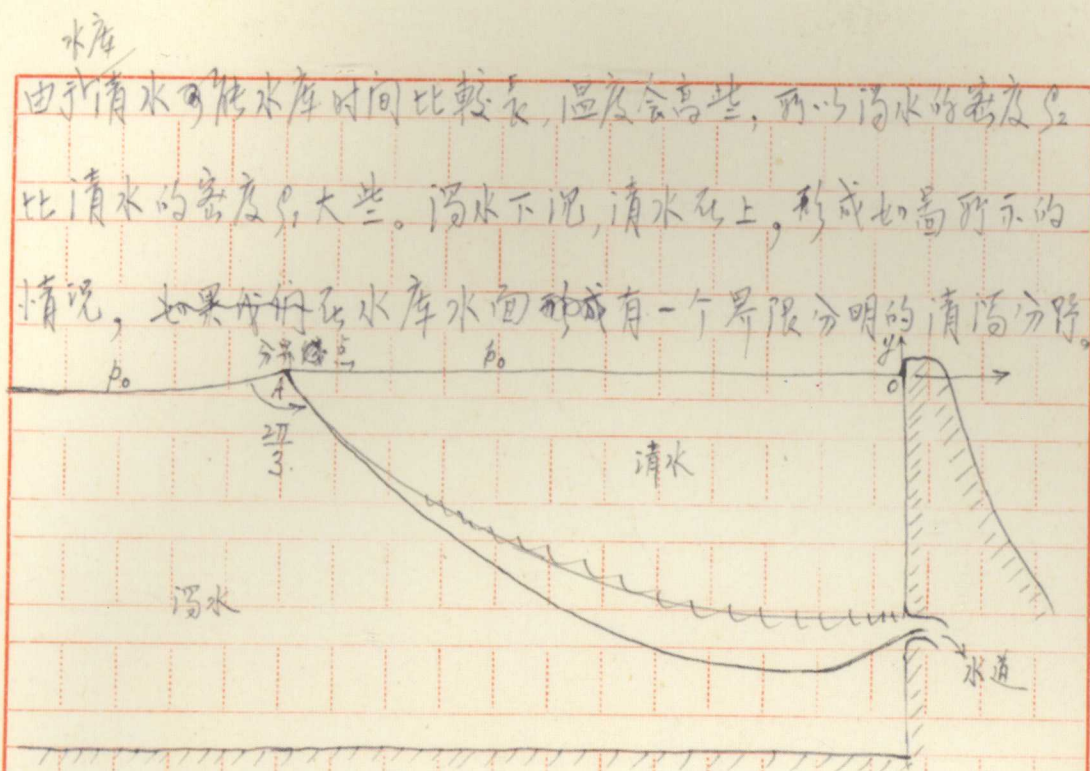 水库
由于清水可能水库时间比較长,温度会高些,所以浑水的密度ρ₂
比清水的密度ρ₁大些。浑水下沉,清水在上,形成如图所示的
情况,如果我们在水库水面形成有一个界限分明的清浑分野。
分界点
p₀
p₀
y
O
A
2π/3
清水
浑水
水道